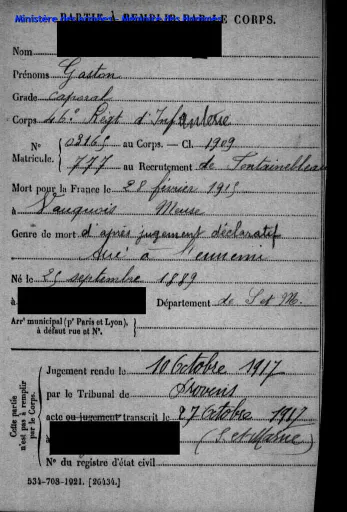 PARTIE À REMPLIR PAR LE CORPS.
Nom
Prénoms Gaston
Grade caporal
Corps 46e Régt d'Infanterie
N° 03165 au Corps. — Cl. 1909
Matricule. 777 au Recrutement de Fontainebleau
Mort pour la France le 28 février 1915
à Vauquois Meuse
Genre de mort d'après jugement déclaratif
Tué à l'ennemi
Né le 25 septembre 1889
à Département de S et M.
Arr^t municipal (p^r Paris et Lyon),
à défaut rue et N°.
Cette partie
n'est pas à remplir
par le Corps.
Jugement rendu le 10 Octobre 1917
par le Tribunal de Provins
acte ou jugement transcrit le 27 Octobre 1917
à (S. et Marne)
N° du registre d'état civil
534-708-1921. [26434.]